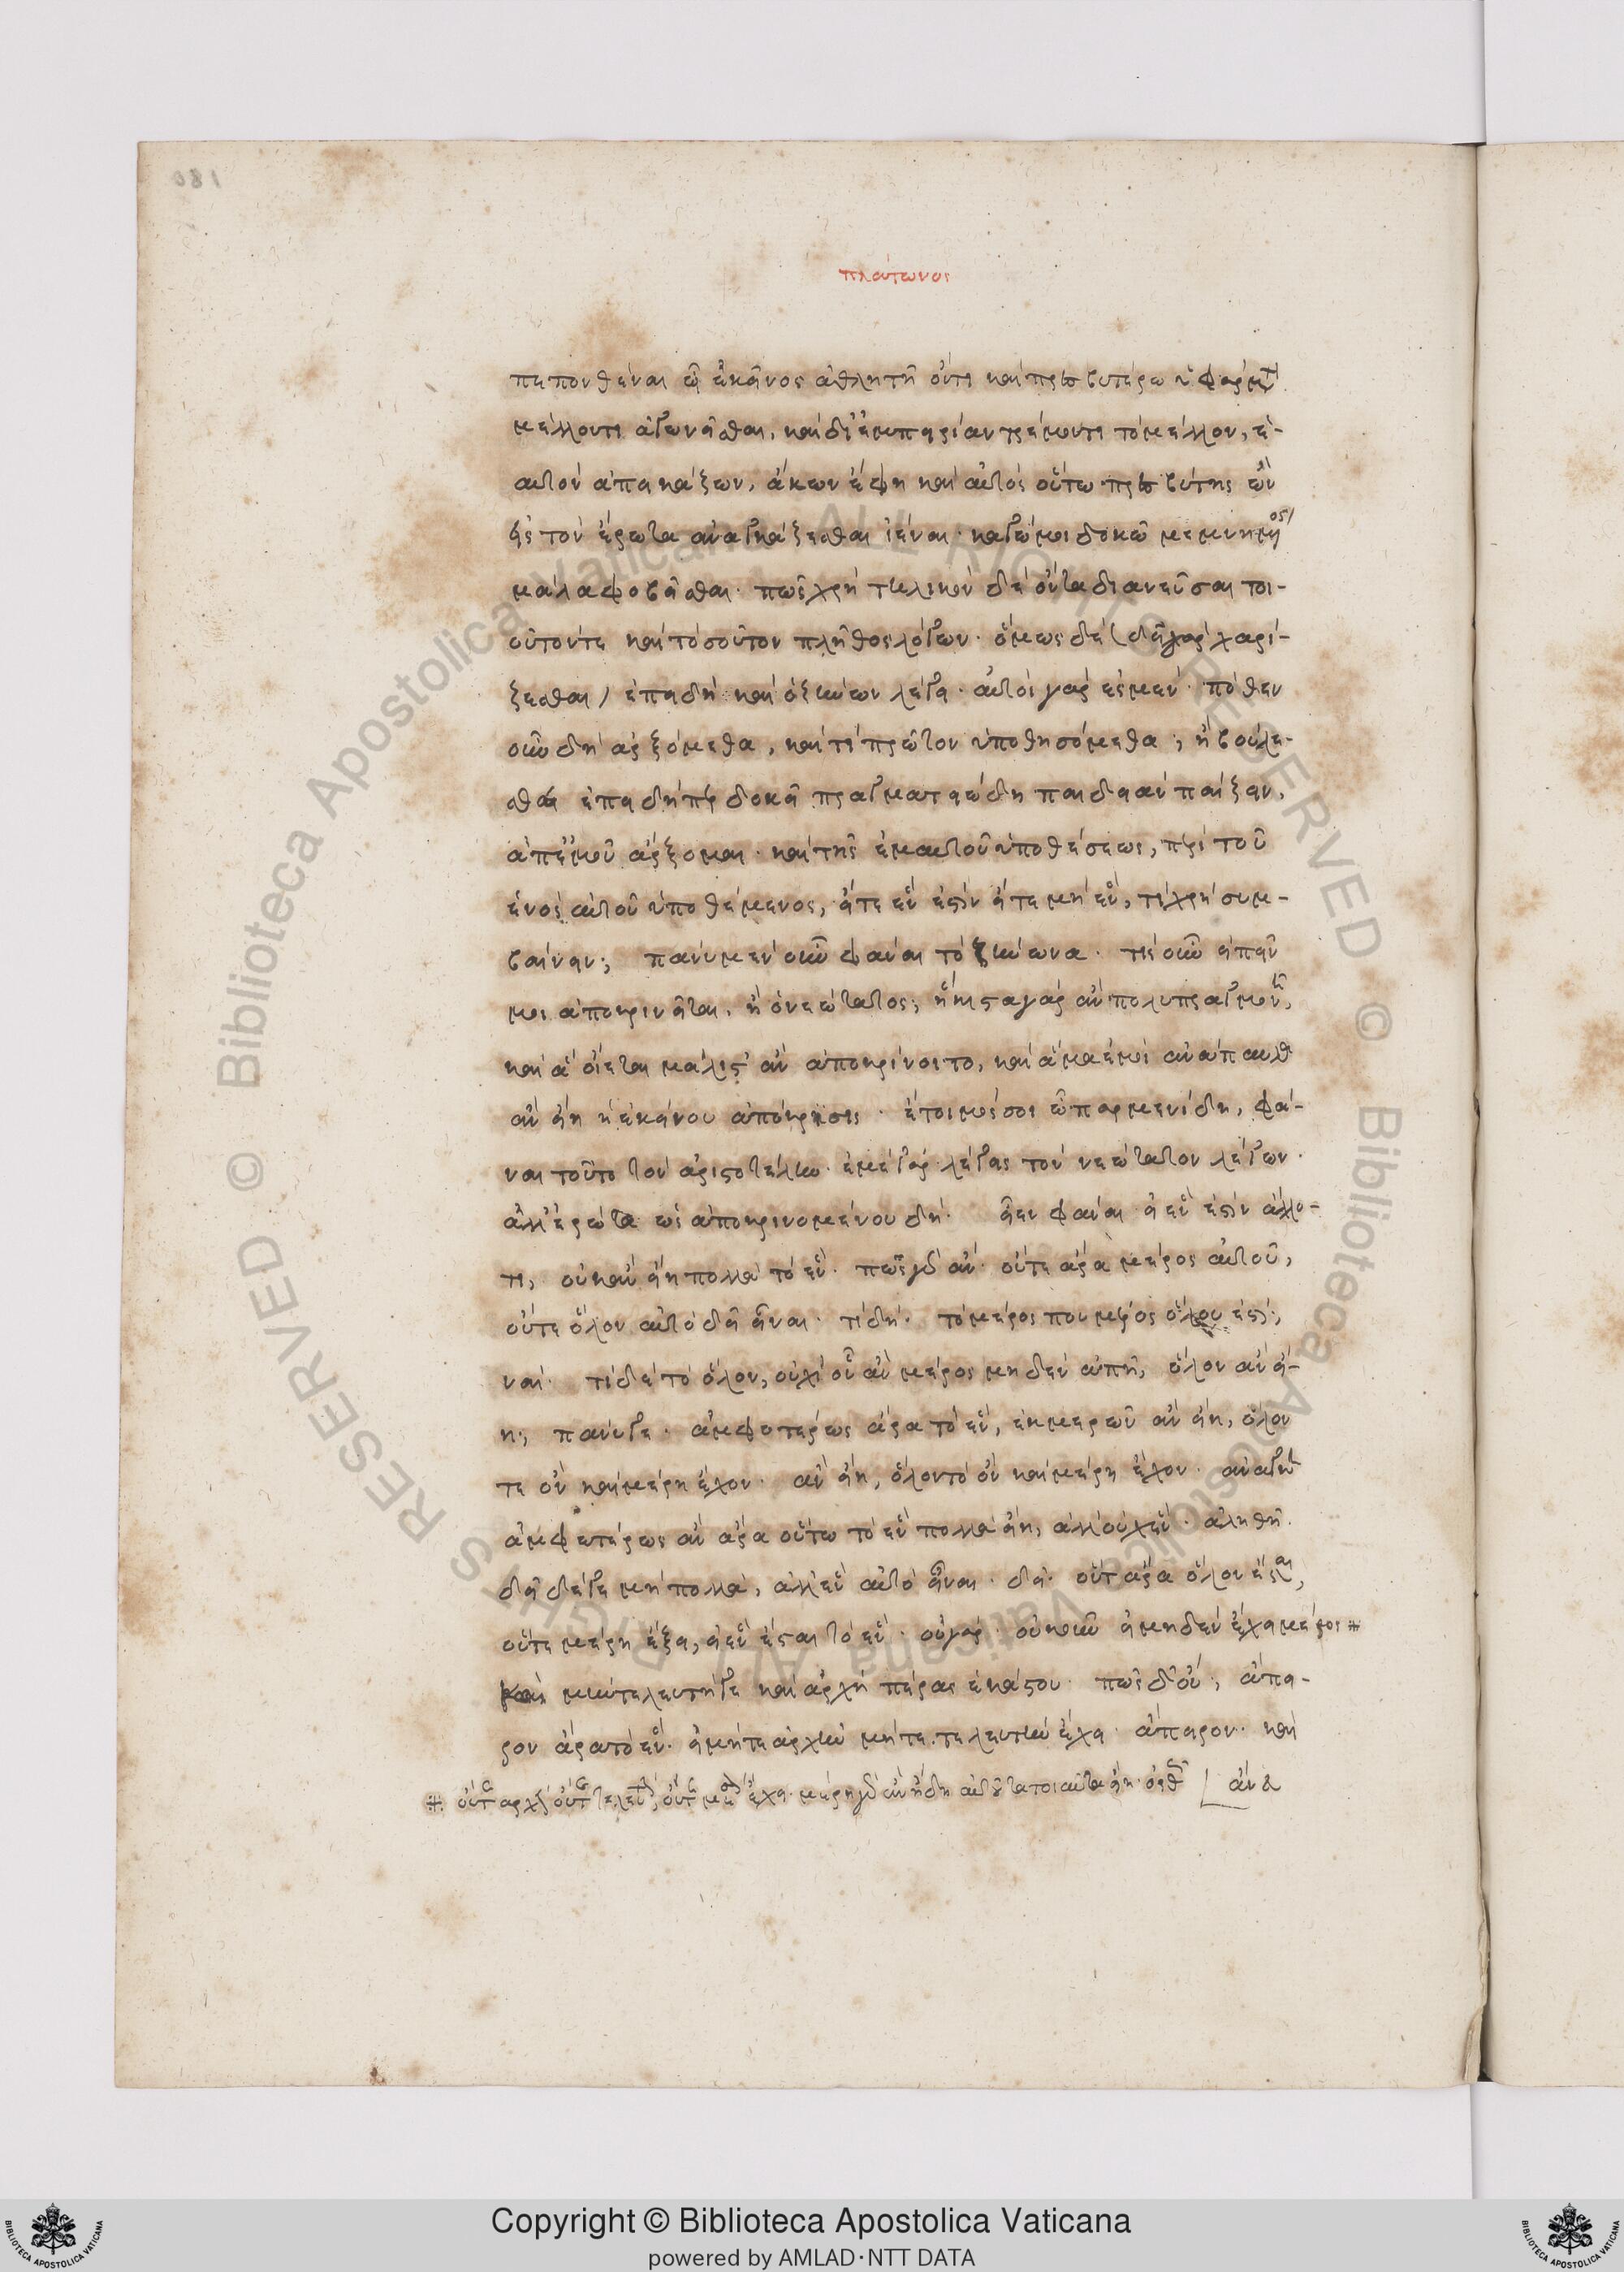 081
πλάτωνος
πεπονθέναι ᾧ ἐκεῖνος ἀθλητῆ ὄντι καὶ πρεσβυτέρω ὑφ' ἅρματι
μέλλοντι ἀγωνιεῖσθαι, καὶ δι' ἐμπειρίαν τρέμοντι τὸ μέλλον, ἑ-
αυτὸν ἀπεικάζων, ἄκων ἔφη καὶ αὐτὸς οὕτω πρεσβύτης ὢν
εἰς τὸν ἔρωτα ἀναγκάζεσθαι ἰέναι· κἀγώ μοι δοκῶ μεμνημένος
μάλα φοβεῖσθαι· πῶς χρὴ τηλικόνδε ὄντα διανεῦσαι τοι-
οῦτόν τε καὶ τοσοῦτον πλῆθος λόγων· ὅμως δὲ (δεῖ γὰρ χαρί-
ζεσθαι) ἐπειδὴ καὶ ὁ ζήνων λέγει· αὐτοὶ γάρ ἐσμεν· πόθεν
οὖν δὴ ἀρξόμεθα, καὶ τί πρῶτον ὑποθησόμεθα; ἢ βούλε-
σθαι ἐπειδήπερ δοκεῖ πραγματειώδη παιδιὰν παίζειν,
ἀπ' ἐμοῦ ἄρξομαι· καὶ τῆς ἐμαυτοῦ ὑποθέσεως, περὶ τοῦ
ἑνὸς αὐτοῦ ὑποθέμενος, εἴτε ἕν ἐστιν εἴτε μὴ ἕν, τί χρὴ συμ-
βαίνειν; πάνυ μὲν οὖν φάναι τὸν ζήνωνα· τίς οὖν εἰπεῖν
μοι ἀποκρινεῖται, ἢ ὁ νεώτατος; ἥκιστα γὰρ ἂν πολυπραγμονοῖ,
καὶ ἃ οἴεται μάλιστ' ἂν ἀποκρίνοιτο, καὶ ἅμα ἐμοὶ ἀνάπαυλ'
ἂν εἴη ἡ ἐκείνου ἀπόκρισις· ἕτοιμός σοι ὦ παρμενίδη, φά-
ναι τοῦτο τὸν ἀριστοτέλην· ἐμὲ γὰρ λέγεις τὸν νεώτατον λέγων·
ἀλλ' ἐρώτα ὡς ἀποκρινομένου δή· εἶεν φάναι εἰ ἕν ἐστιν ἄλλο-
τι, οὐκ ἂν εἴη πολλὰ τὸ ἕν· πῶς γὰρ ἄν· οὔτε ἄρα μέρος αὐτοῦ,
οὔτε ὅλον αὐτὸ δεῖ εἶναι· τί δή· τὸ μέρος που μέρος ὅλου ἐστί;
ναί· τί δὲ τὸ ὅλον, οὐχὶ οὗ ἂν μέρος μηδὲν ἀπῇ, ὅλον ἂν εἴ-
η; πάνυ γε· ἀμφοτέρως ἄρα τὸ ἕν, ἐκ μερῶν ἂν εἴη, ὅλον
τε ὂν καὶ μέρη ἔχον· ἂν εἴη, ὅλον τὸ ὂν καὶ μέρη ἔχον· ἀνάγκη
ἀμφοτέρως ἂν ἄρα οὕτω τὸ ἓν πολλὰ εἴη, ἀλλ' οὐχ ἕν· ἀληθῆ·
δεῖ δέ γε μὴ πολλὰ, ἀλλ' ἓν αὐτὸ εἶναι· δεῖ· οὔτ' ἄρα ὅλον ἔσται,
οὔτε μέρη ἕξει, εἰ ἓν ἔσται τὸ ἕν· οὐ γάρ· οὐκοῦν εἰ μηδὲν ἔχει μέρος ⁜
καὶ μὴν τελευτή γε καὶ ἀρχὴ πέρας ἑκάστου· πῶς δ' οὔ; ἄπει-
ρον ἄρα τὸ ἕν· εἰ μήτε ἀρχὴν μήτε τελευτὴν ἔχει· ἄπειρον·· καὶ
⁜ οὔτ' ἂν ἀρχὴν οὔτε τελευτὴν, οὔτε μέσον ἔχει· μέρη γὰρ ἂν ἤδη αὐτοῦ τὰ τοιαῦτα εἴη· ὀρθῶς ἄνευ
Copyright © Biblioteca Apostolica Vaticana
powered by AMLAD·NTT DATA